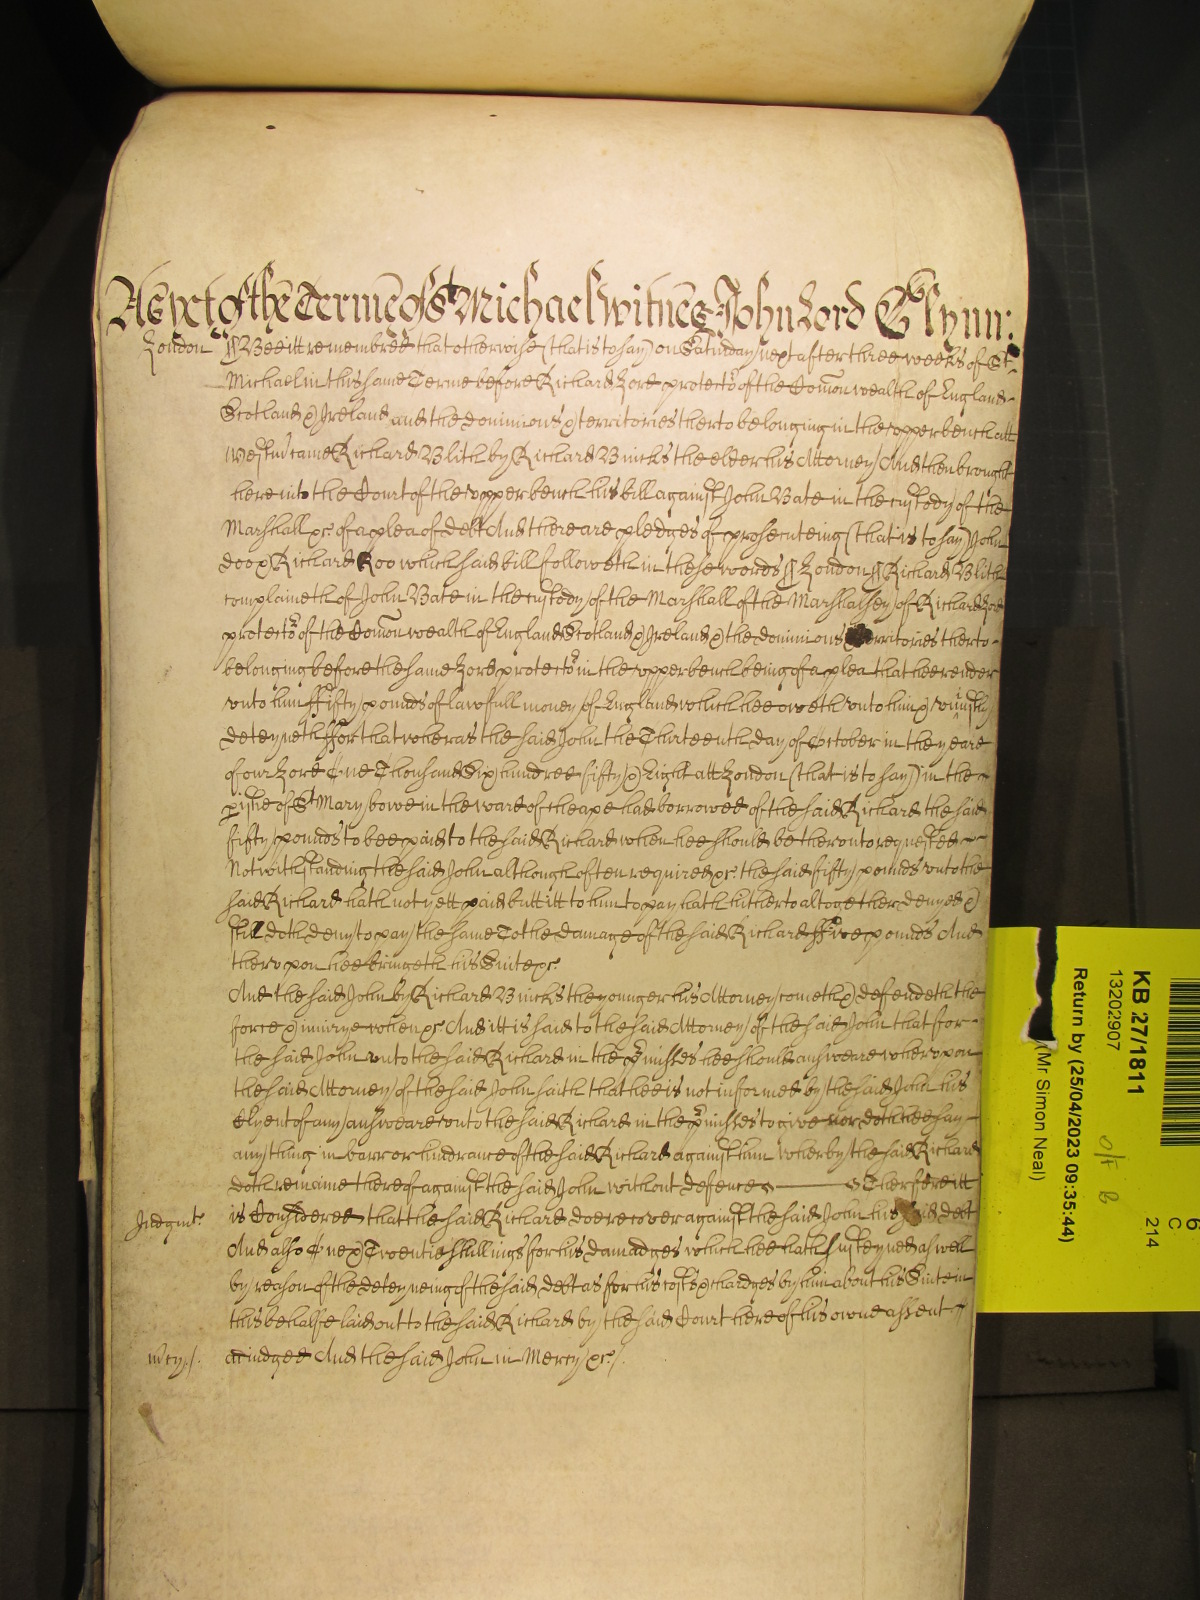 As yet of the Terme of St Michael witnes John Lord Glynn:
London ss Bee itt remembred that otherwise (that is to say) on Saturday next after three weekes of St
Michael in this same Terme before Richard Lord protector of the Comon wealth of England
Scotland & Ireland and the dominions & territories therto belonging in the upper bench att
Westm came Richard Blith by Richard Binckes the elder his Attorney And then brought
here into the Court of the upper bench his bill against John Bate in the custody of the
Marshall &c of a plea of debt And there are pledges of prosecuteing (that is to say) John
doo & Richard Roo which said bill followeth in these words ss London ss Richard Blith
complaineth of John Bate in the custody of the Marshall of the Marshalsey of Richard Lord
protector of the Comon wealth of England Scotland & Ireland & the dominions territories therto
belonging before the same Lord protector in the upper bench being of a plea that hee render
unto him ffifty pounds of lawfull money of England which hee oweth unto him & uniustly
deteyneth ffor that wheras the said John the Thirteenth day of October in the yeare
of our Lord One Thousand Six hundred fifty & Eight att London (that is to say) in the
pishe of St Mary bowe in the ward of Cheape had borrowed of the said Richard the said
fifty pounds to bee paid to the said Richard when hee should be therunto requested
Notwithstanding the said John although often required &c the said fifty pounds unto the
said Richard hath not yett paid but itt to him to pay hath hitherto altogether denyed &
still doth deny to pay the same To the damage of the said Richard ffive pounds And
therupon hee bringeth his Suite &c
And the said John by Richard Binckes the younger his Attorney cometh & defendeth the
force & iniurye when &c And itt is said to the said Attorney of the said John that for
the said John unto the said Richard in the pmisses hee should answeare wherupon
the said Attorney of the said John saith that hee is not informed by the said John his
Clyent of any answeare unto the said Richard in the pmisses to give nor doth hee say
anything in barr or hindrance of the said Richard against him wherby the said Richard
doth remaine thereof against the said John without defence Therfore itt
Judgmt is Considered that the said Richard doe recover against the said John his said debt
And also One & Twentie shillings for his damadges which hee hath susteyned aswell
by reason of the deteyneing of the said debt as for his costs & chardges by him about his Suite in
this behalfe laid out to the said Richard by the said Court here of his owne assent
mcy adiudged And the said John in Mercy &c
KB 27/1811
13202907
(Mr Simon Neal)
Return by (25/04/2023 09:35:44)
C
214